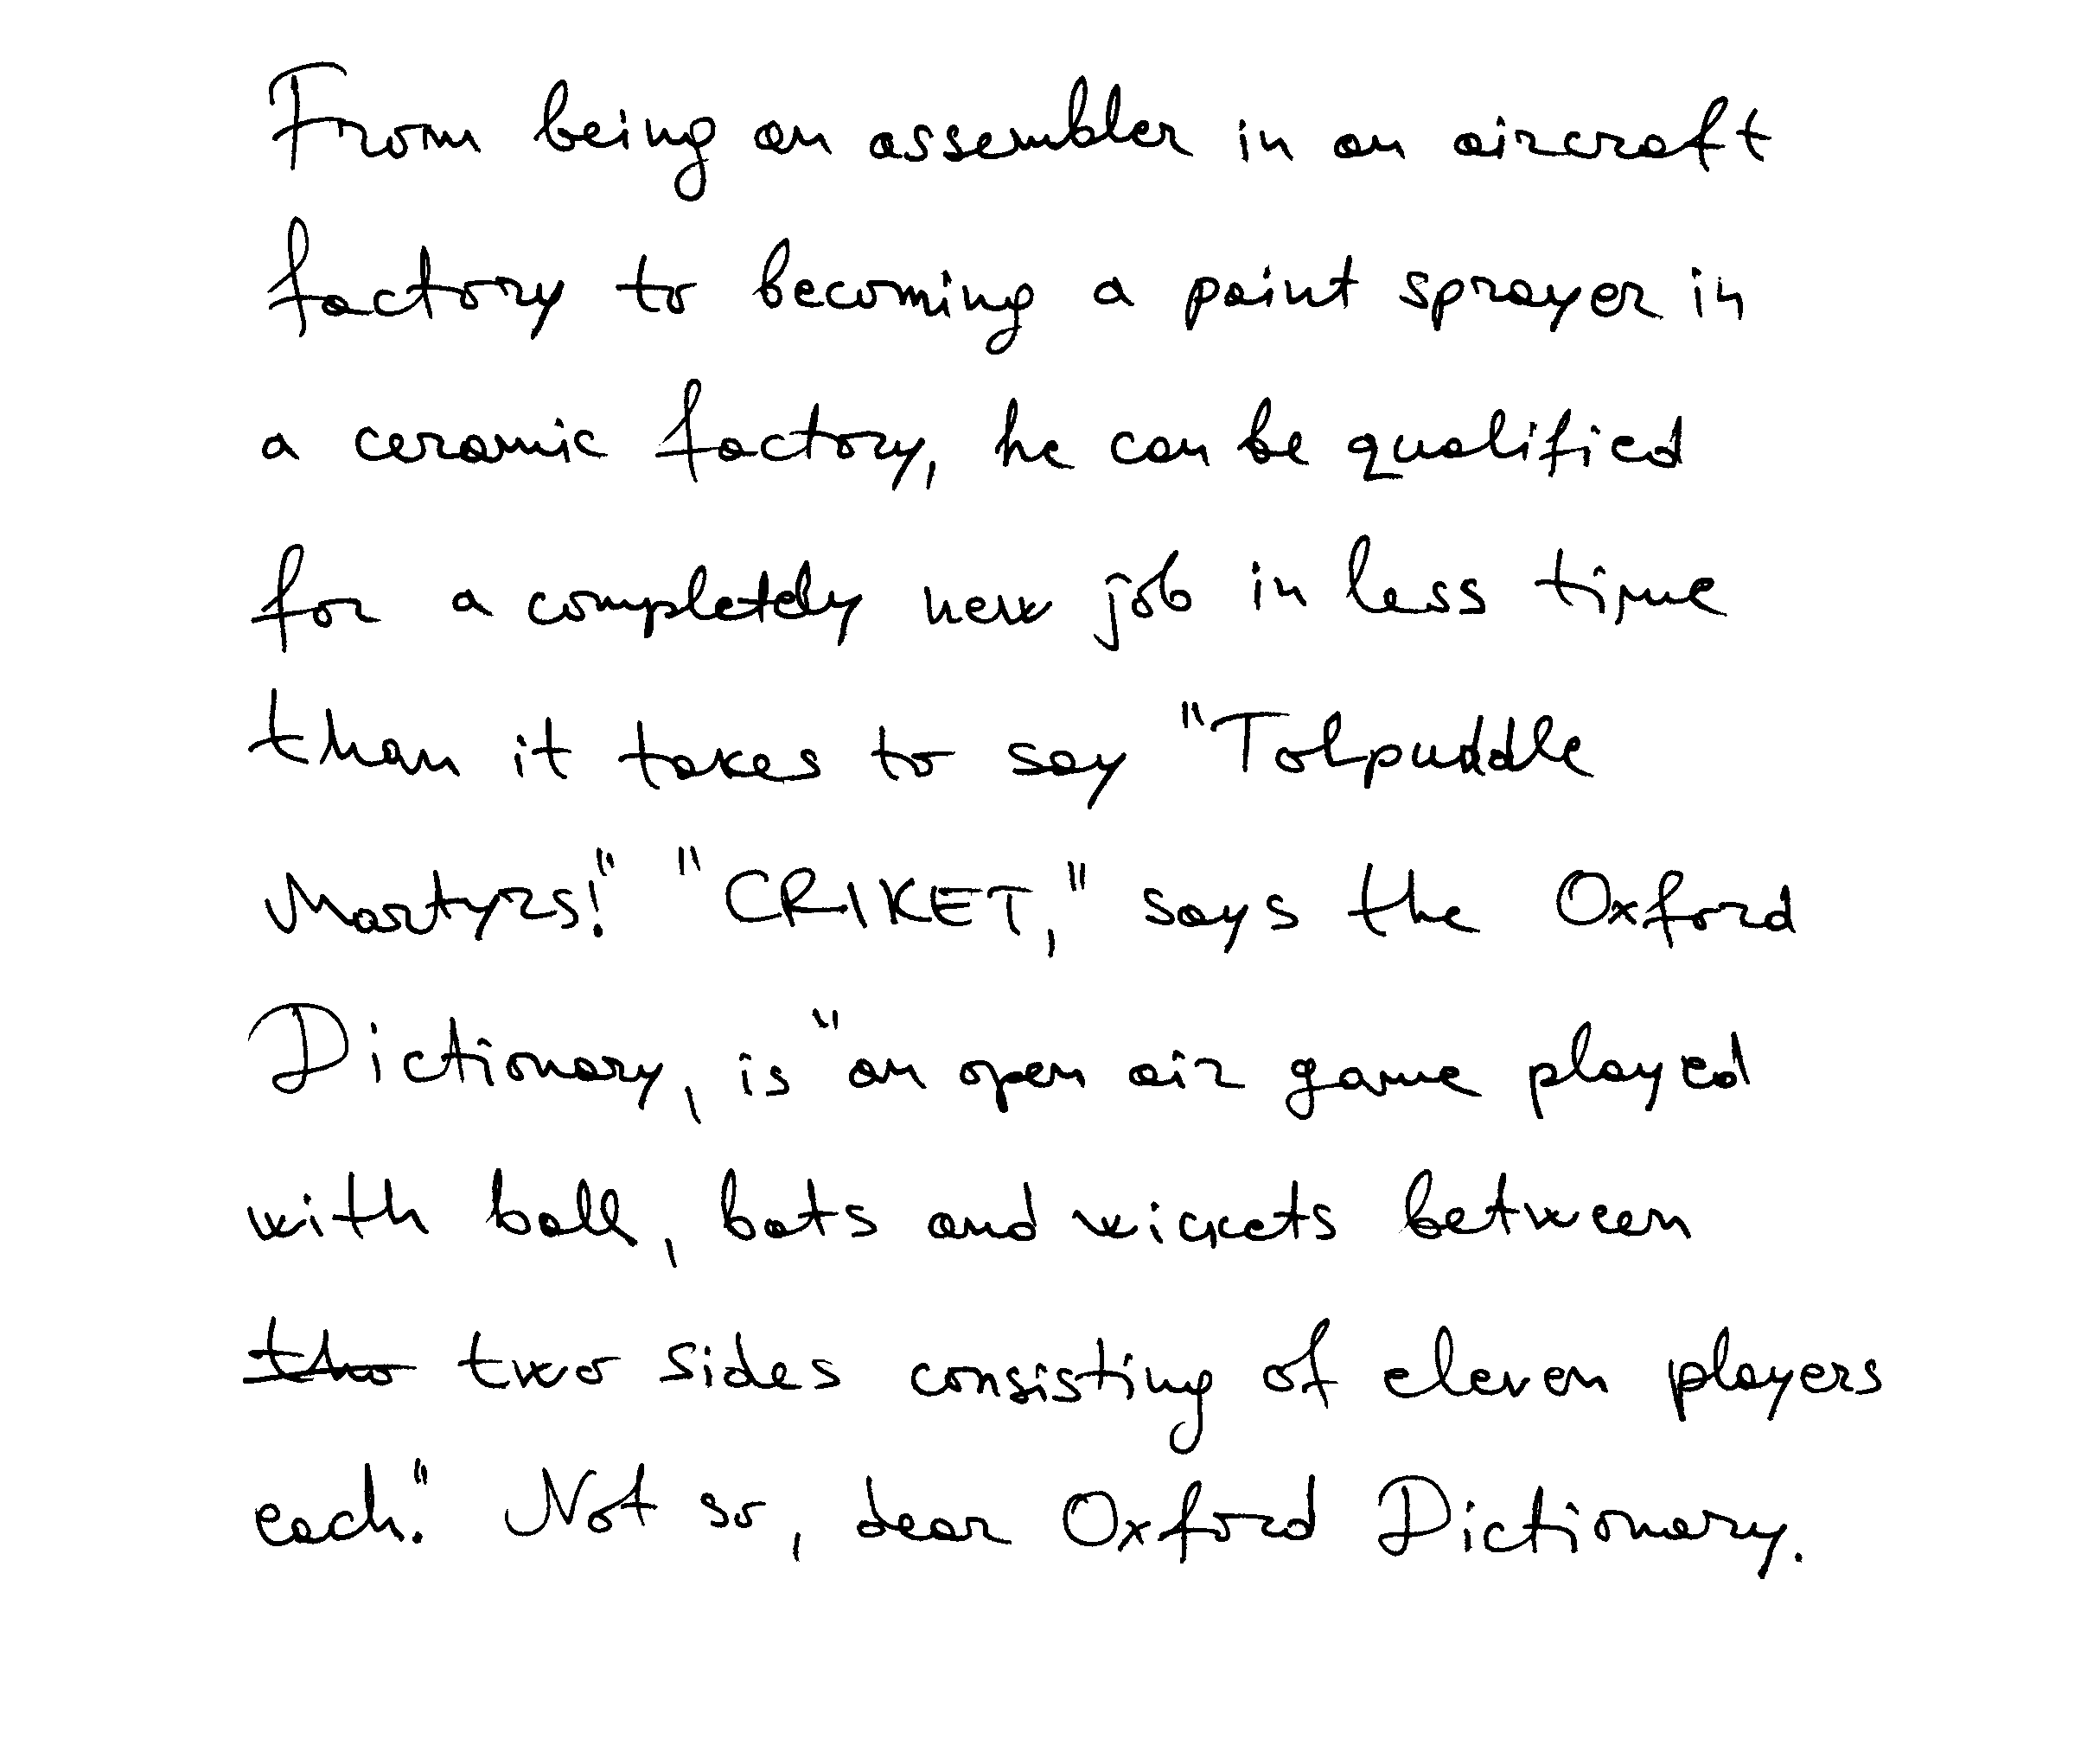 From being an assembler in an aircraft
factory to becoming a paint sprayer in
a ceramic factory, he can be qualified
for a completely new job in less time
than it takes to say "Tolpuddle
Martyrs!" "CRIKET," says the Oxford
Dictionary, is "an open air game played
with ball, bats and wickets between
~~tho~~ two sides consisting of eleven players
each." Not so, dear Oxford Dictionary.